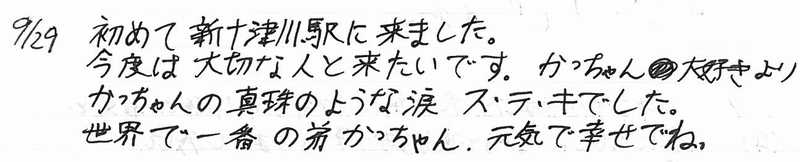 9/29 初めて新十津川駅に来ました。
今度は大切な人と来たいです。かっちゃん大好きより
かっちゃんの真珠のような涙 ス・テ・キでした。
世界で一番の弟かっちゃん．元気で幸せでね。